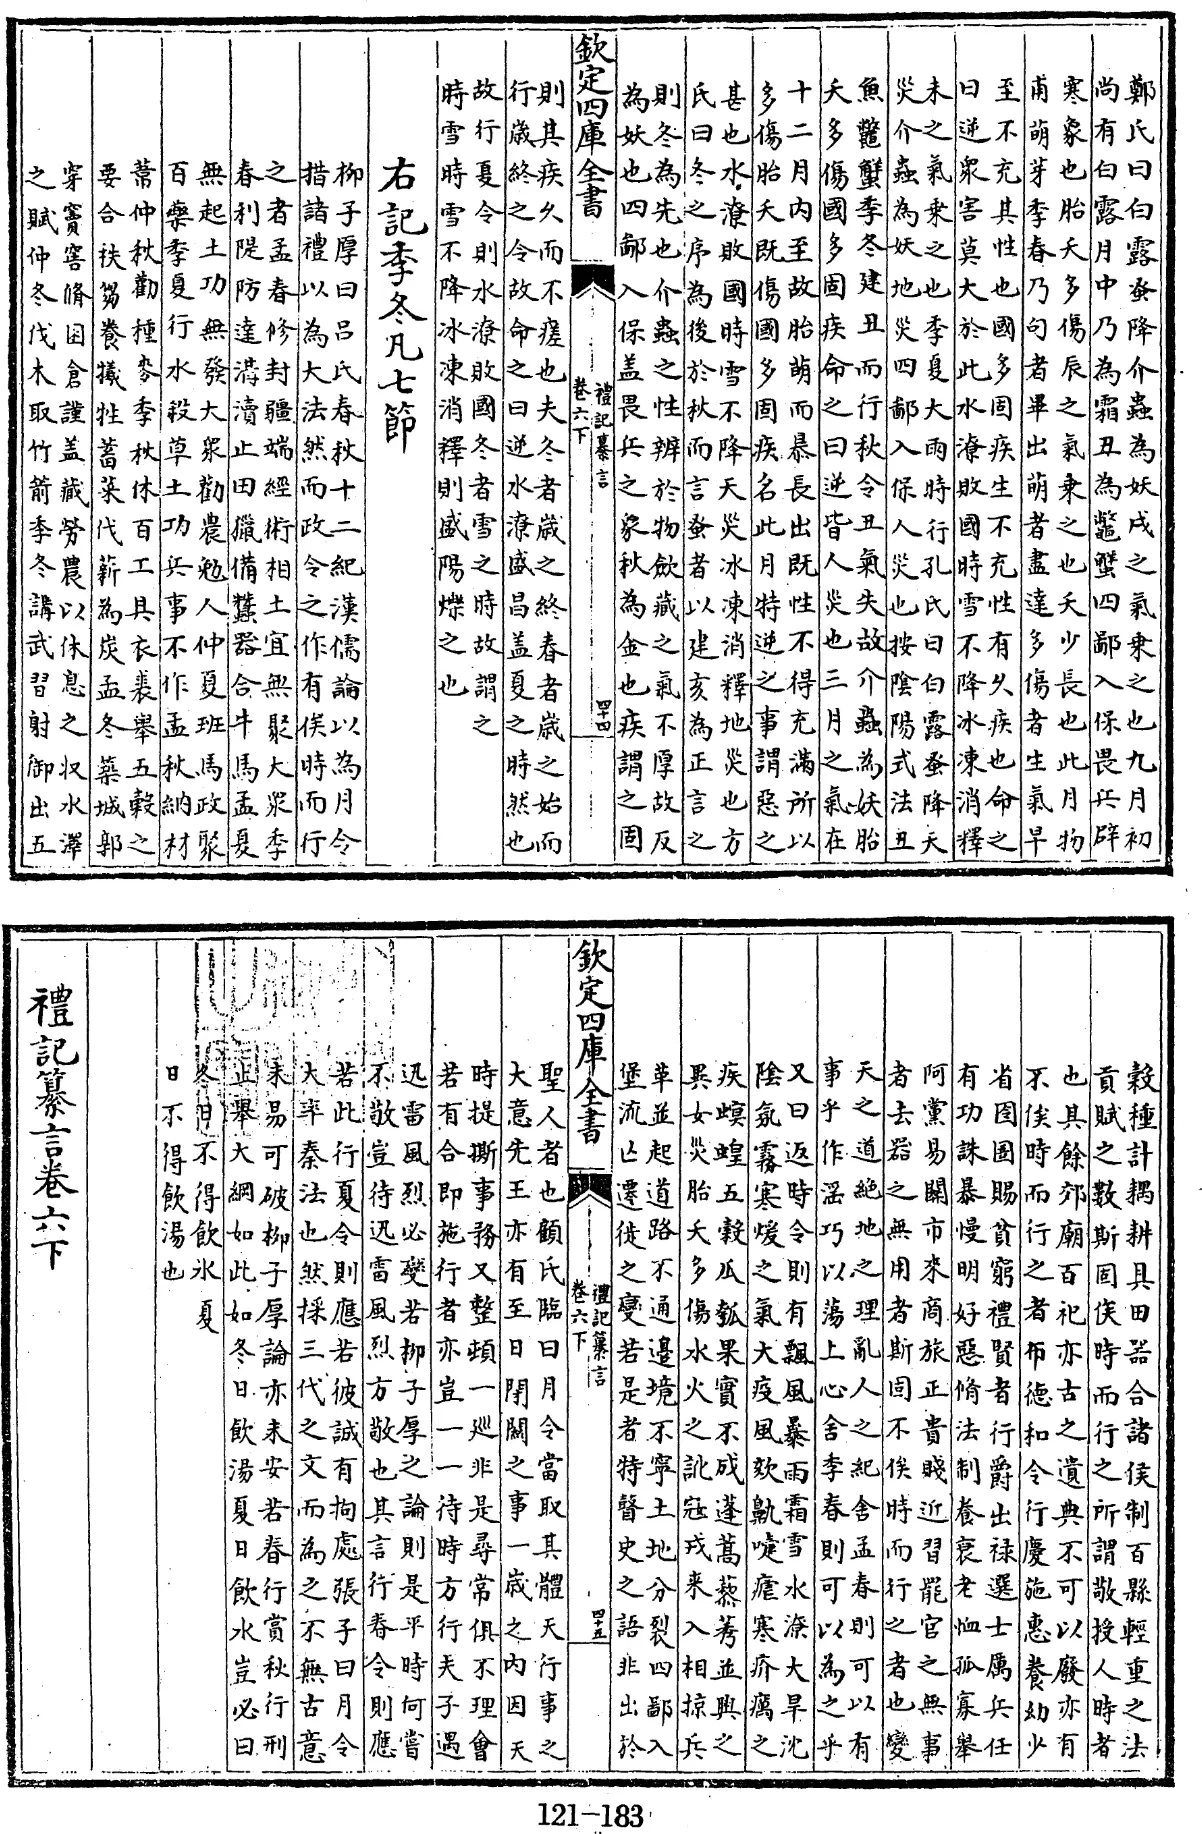 鄭氏曰白露蚤降介蟲為妖戌之氣乗之也九月初
尚有白露月中乃為霜丑為鼈蟹四鄙入保畏兵辟
寒象也胎夭多傷辰之氣乗之也夭少長也此月物
甫萌芽季春乃句者畢出萌者盡達多傷者生氣早
至不充其性也國多固疾生不充性有久疾也命之
曰逆衆害莫大於此水潦敗國時雪不降氷凍消釋
未之氣乗之也季夏大雨時行孔氏曰白露蚤降天
災介蟲為妖地災四鄙入保人災也按隂陽式法丑
魚鼈蟹季冬建丑而行秋令丑氣失故介蟲為妖胎
夭多傷國多固疾命之曰逆皆人災也三月之氣在
十二月内至故胎萌而暴長出既性不得充滿所以
多傷胎夭既傷國多固疾名此月特逆之事謂惡之
甚也水潦敗國時雪不降天災氷凍消釋地災也方
氏曰冬之序為後於秋而言蚤者以建亥為正言之
則冬為先也介蟲之性辨於物歛藏之氣不厚故反
為妖也四鄙入保盖畏兵之象秋為金也疾謂之固
欽定四庫全書
禮記纂言
卷六下
四十四
則其疾久而不瘥也夫冬者歳之終春者歳之始而
行歳終之令故命之曰逆水潦盛昌盖夏之時然也
故行夏令則水潦敗國冬者雪之時故謂之
時雪時雪不降氷凍消釋則盛陽爍之也
右記季冬凡七節
柳子厚曰吕氏春秋十二紀漢儒論以為月令
措諸禮以為大法然而政令之作有俟時而行
之者孟春修封疆端經術相土宜無聚大衆季
春利隄防達溝瀆止田獵備蠶器合牛馬孟夏
無起土功無發大衆勸農勉人仲夏班馬政聚
百藥季夏行水殺草土功兵事不作孟秋納材
葦仲秋勸種麥季秋休百工具衣裘舉五穀之
要合秩芻養犧牲蓄菜伐薪為炭孟冬築城郭
穿竇窖脩囷倉謹盖藏勞農以休息之収水澤
之賦仲冬伐木取竹箭季冬講武習射御出五
穀種計耦耕具田器合諸侯制百縣輕重之法
貢賦之數斯固俟時而行之所謂敬授人時者
也其餘郊廟百祀亦古之遺典不可以廢亦有
不俟時而行之者布德和令行慶施惠養幼少
省囹圄賜貧窮禮賢者行爵出禄選士厲兵任
有功誅暴慢明好惡脩法制養衰老恤孤寡舉
阿黨易關市來商旅正貴賤近習罷官之無事
者去器之無用者斯固不俟時而行之者也變
天之道絶地之理亂人之紀舍孟春則可以有
事乎作淫巧以蕩上心舍季春則可以為之乎
又曰返時令則有飄風暴雨霜雪水潦大旱沈
隂氛霧寒煖之氣大疫風欬鼽嚏瘧寒疥癘之
疾螟蝗五穀瓜瓠果實不成蓬蒿藜莠並興之
異女災胎夭多傷水火之訛冦戎來入相掠兵
革並起道路不通邊境不寧土地分裂四鄙入
堡流亡遷徙之變若是者特瞽史之語非出於
欽定四庫全書
禮記纂言
卷六下
四十五
聖人者也顧氏臨曰月令當取其體天行事之
大意先王亦有至日閉關之事一歳之内因天
時提撕事務又整頓一廵非是尋常俱不理會
若有合即施行者亦豈一一待時方行夫子遇
迅雷風烈必變若柳子厚之論則是平時何嘗
不敬豈待迅雷風烈方敬也其言行春令則應
若此行夏令則應若彼誠有拘處張子曰月令
大率秦法也然採三代之文而為之不無古意
未易可破柳子厚論亦未安若春行賞秋行刑
止舉大綱如此如冬日飲湯夏日飲水豈必曰
冬日不得飲氷夏
日不得飲湯也
禮記纂言卷六下
121-183